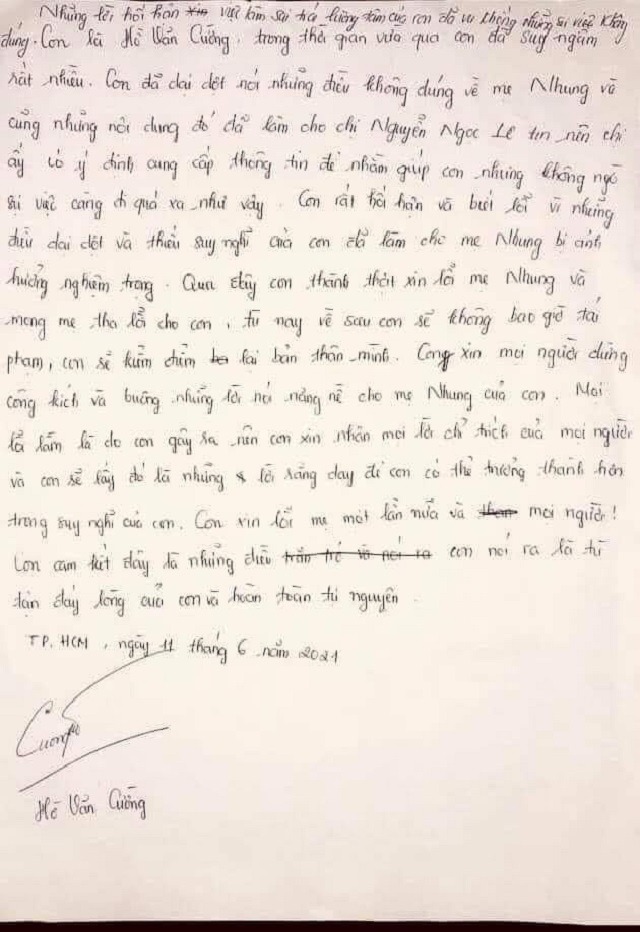 Những lời hối hận xin việc làm sai trái lương tâm của con đã vu khống những sự việc không
đúng. Con là Hồ Văn Cường, trong thời gian vừa qua con đã suy ngẫm
rất nhiều. Con đã dại dột nói những điều không đúng về mẹ Nhung và
cũng những nội dung đó đã làm cho chị Nguyễn Ngọc Lê tin nên chị
ấy có ý định cung cấp thông tin để nhằm giúp con nhưng không ngờ
sự việc càng đi quá xa như vậy. Con rất hối hận và buồi lổi vì những
điều dại dột và thiếu suy nghĩ của con đã làm cho mẹ Nhung bị ảnh
hưởng nghiệm trọng. Qua đây con thành thật xin lỗi mẹ Nhung và
mong mẹ tha lỗi cho con, từ nay về sau con sẽ không bao giờ tái
phạm, con sẽ kiểm điểm lại bản thân mình. Cong xin mọi người đừng
công kích và buông những lời nói nặng nề cho mẹ Nhung của con. Mọi
lỗi lầm là do con gây ra nên con xin nhận mọi lời chỉ trích của mọi người
và con sẽ lấy đó là những lời răng dạy để con có thể trưởng thành hơn
trong suy nghĩ của con. Con xin lỗi mẹ một lần nữa và mọi người!
Con cam kết đây là những điều con nói ra là từ
tận đáy lòng của con và hoàn toàn tự nguyện.
TP. HCM, ngày 11 tháng 6 năm 2021
Cường
Hồ Văn Cường